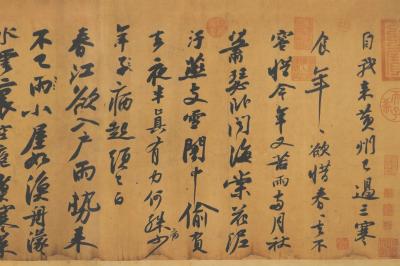 自我來黃州已過三寒
食年〻欲惜春〻去不
容惜今年又苦雨兩月秋
蕭瑟臥聞海棠花泥
汙燕支雪闇中偷負
去夜半真有力何殊病少
年子病起須已白
春江欲入戶雨勢來
不已雨小屋如漁舟濛
水雲裏空庖煮寒菜